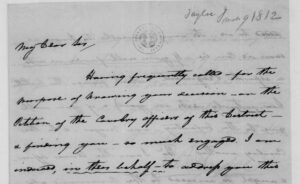 Tayloe J March 9 1812
My Dear Sir,
Having frequently called – for the
purpose of knowing your decision – on the
Petition of the Cavalry officers of this District –
& finding you – so much engaged I am
induced, in their behalf – to address you this